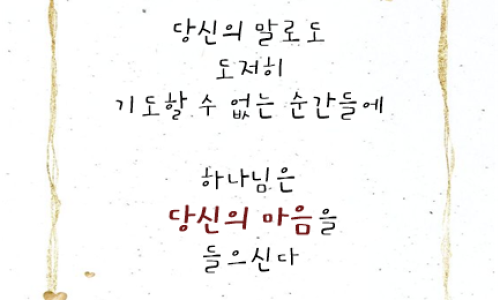 당신의 말로도
도저히
기도할 수 없는 순간들에
하나님은
당신의 마음을
들으신다